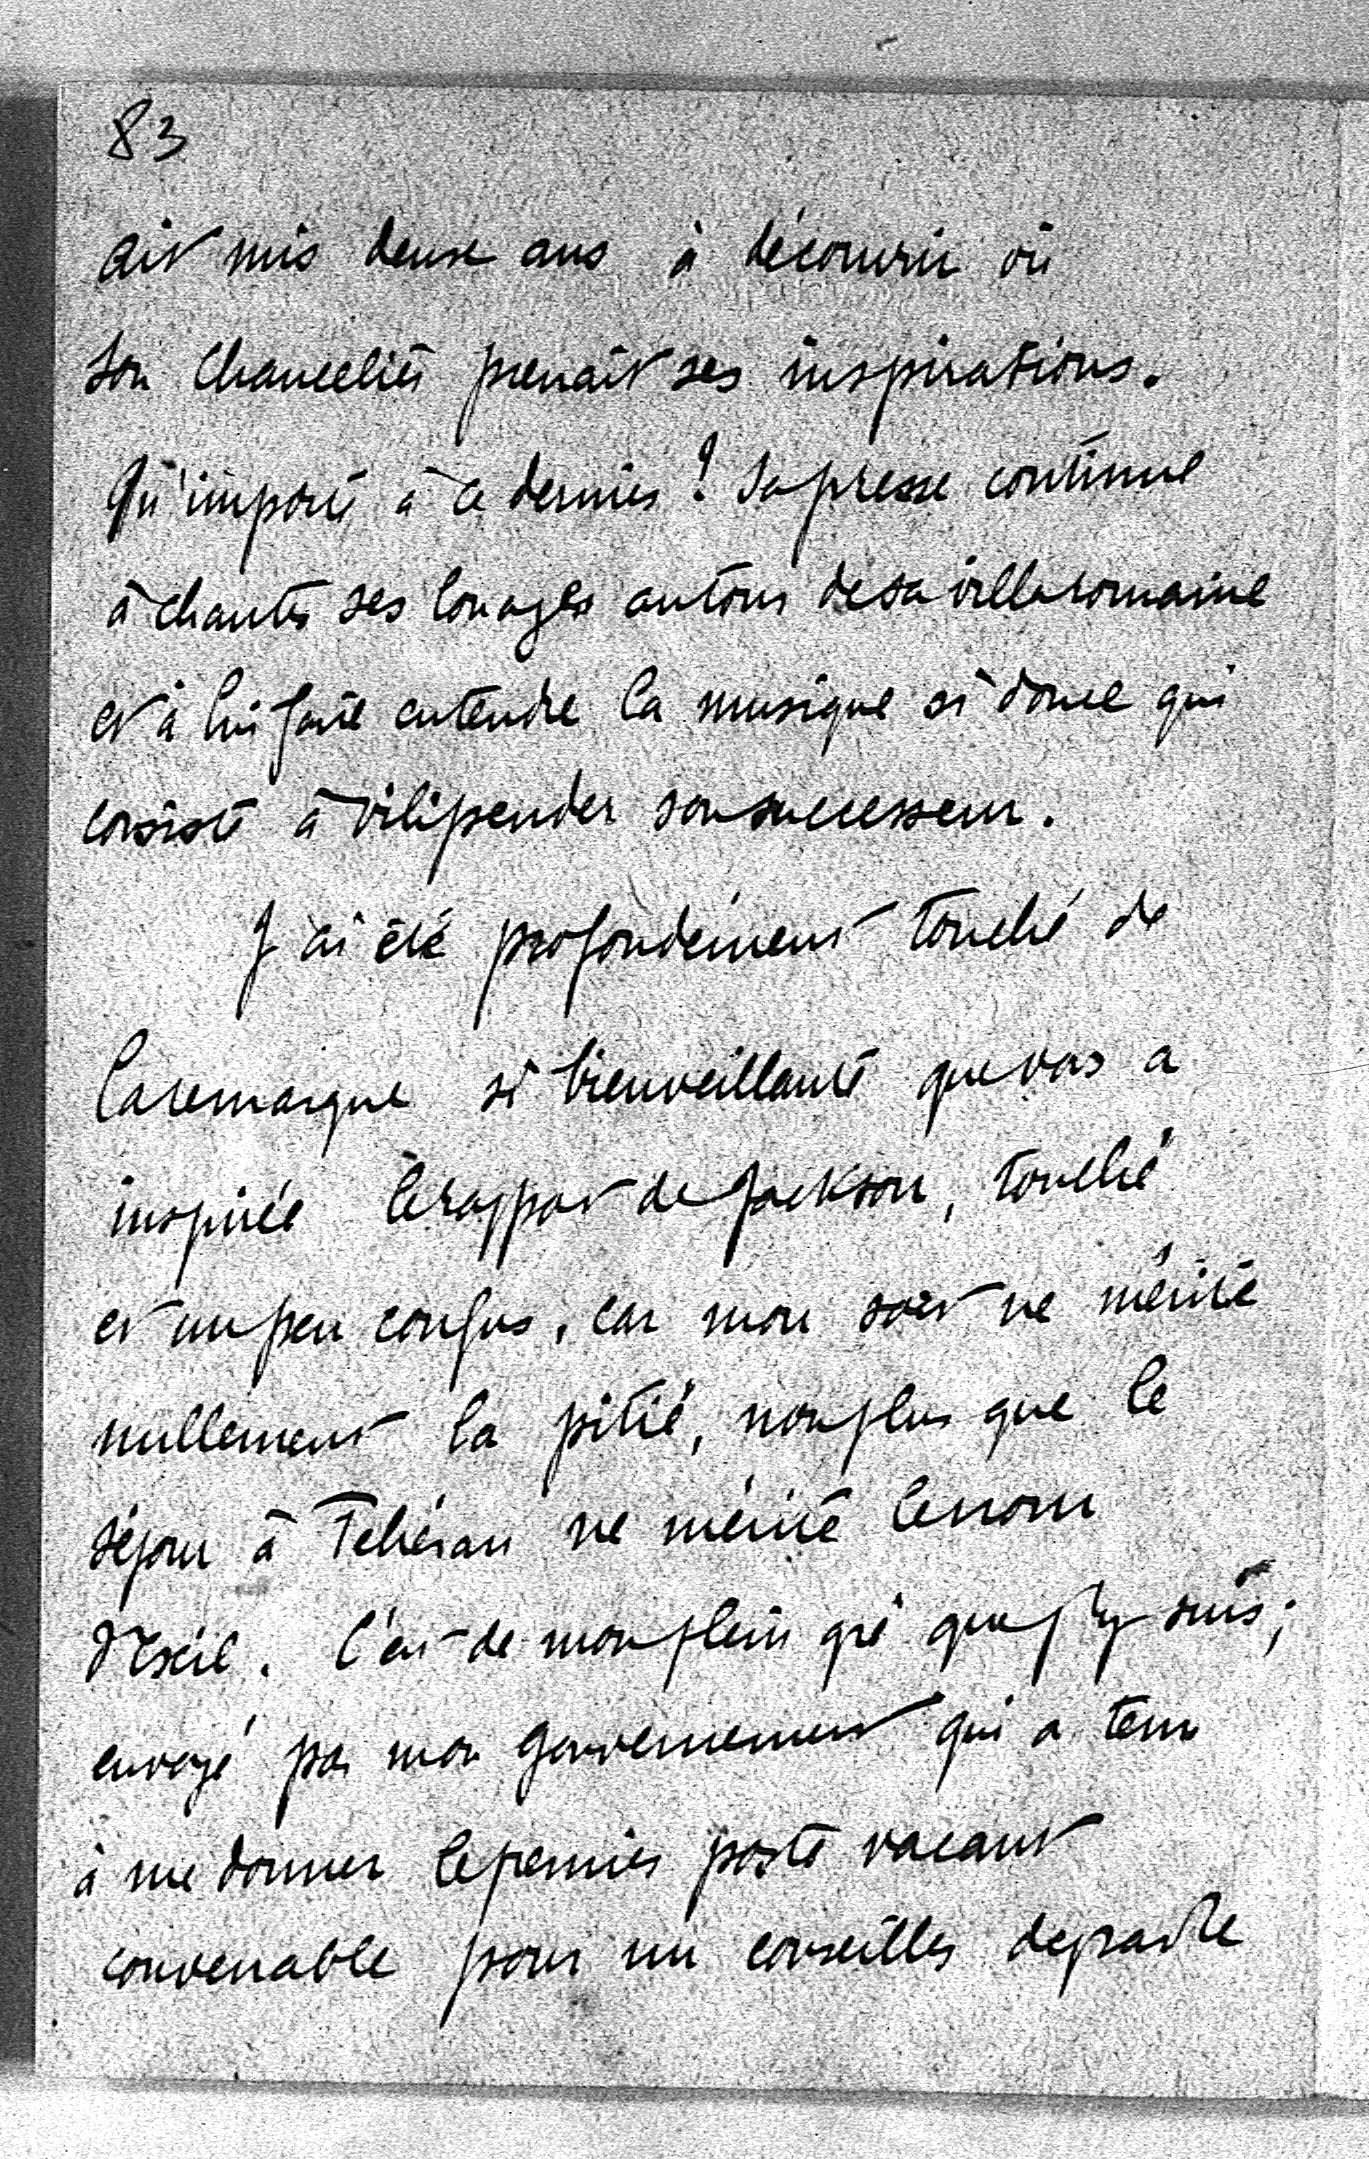 83
ait mis deux ans à découvrir où
son Chancelier prenait ses inspirations.
Qu'importe à ce dernier! Sa presse continue
à chanter ses louages autour de sa villa romaine
et à lui faire entendre la musique si douce qui
consiste à vilipender son successeur.
J'ai été profondément touché de
la remarque si bienveillante que vous a
inspirée le rapport de Jackson, touché
et un peu confus, car mon sort ne mérite
nullement la pitié, non plus que le
séjour à Téhéran ne mérite le nom
d'exil. C'est de mon plein gré que j'y suis;
envoyé par mon gouvernement qui a tenu
à me donner le premier poste vacant
convenable pour un conseiller de grade